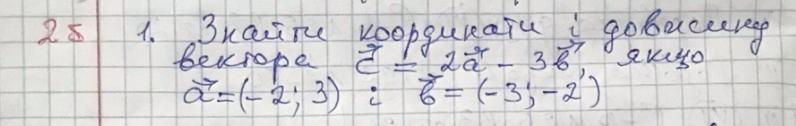 2б 1. Знайти координати і довжину
вектора c⃗ = 2a⃗ - 3b⃗, якщо
a⃗ = (-2; 3) і b⃗ = (-3; -2)